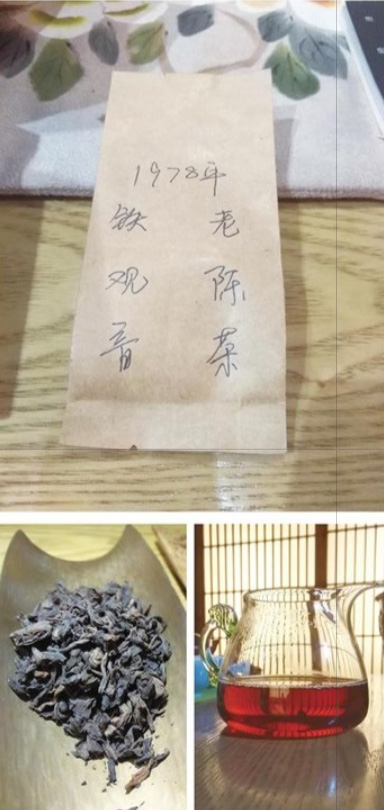 1978年
老陈茶
铁观音